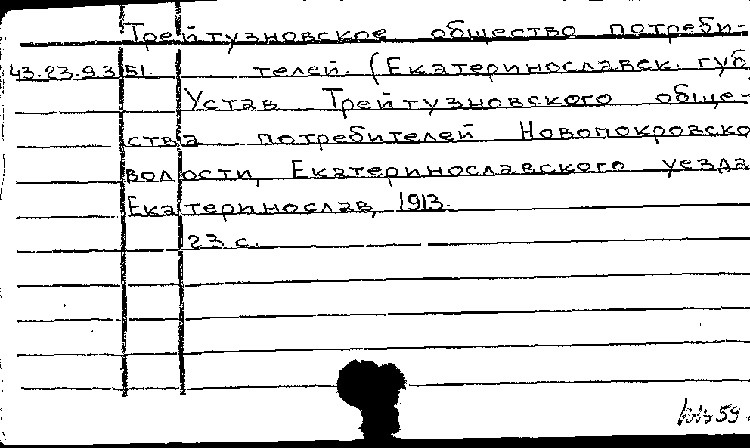 Трейтузновское общество потреби-
43.23.93 51. телей. (Екатеринославск. губ
Устав Трейтузновского обще-
ства потребителей Новопокровско
волости, Екатеринославского уезда
Екатеринослав, 1913.
23 с.
59